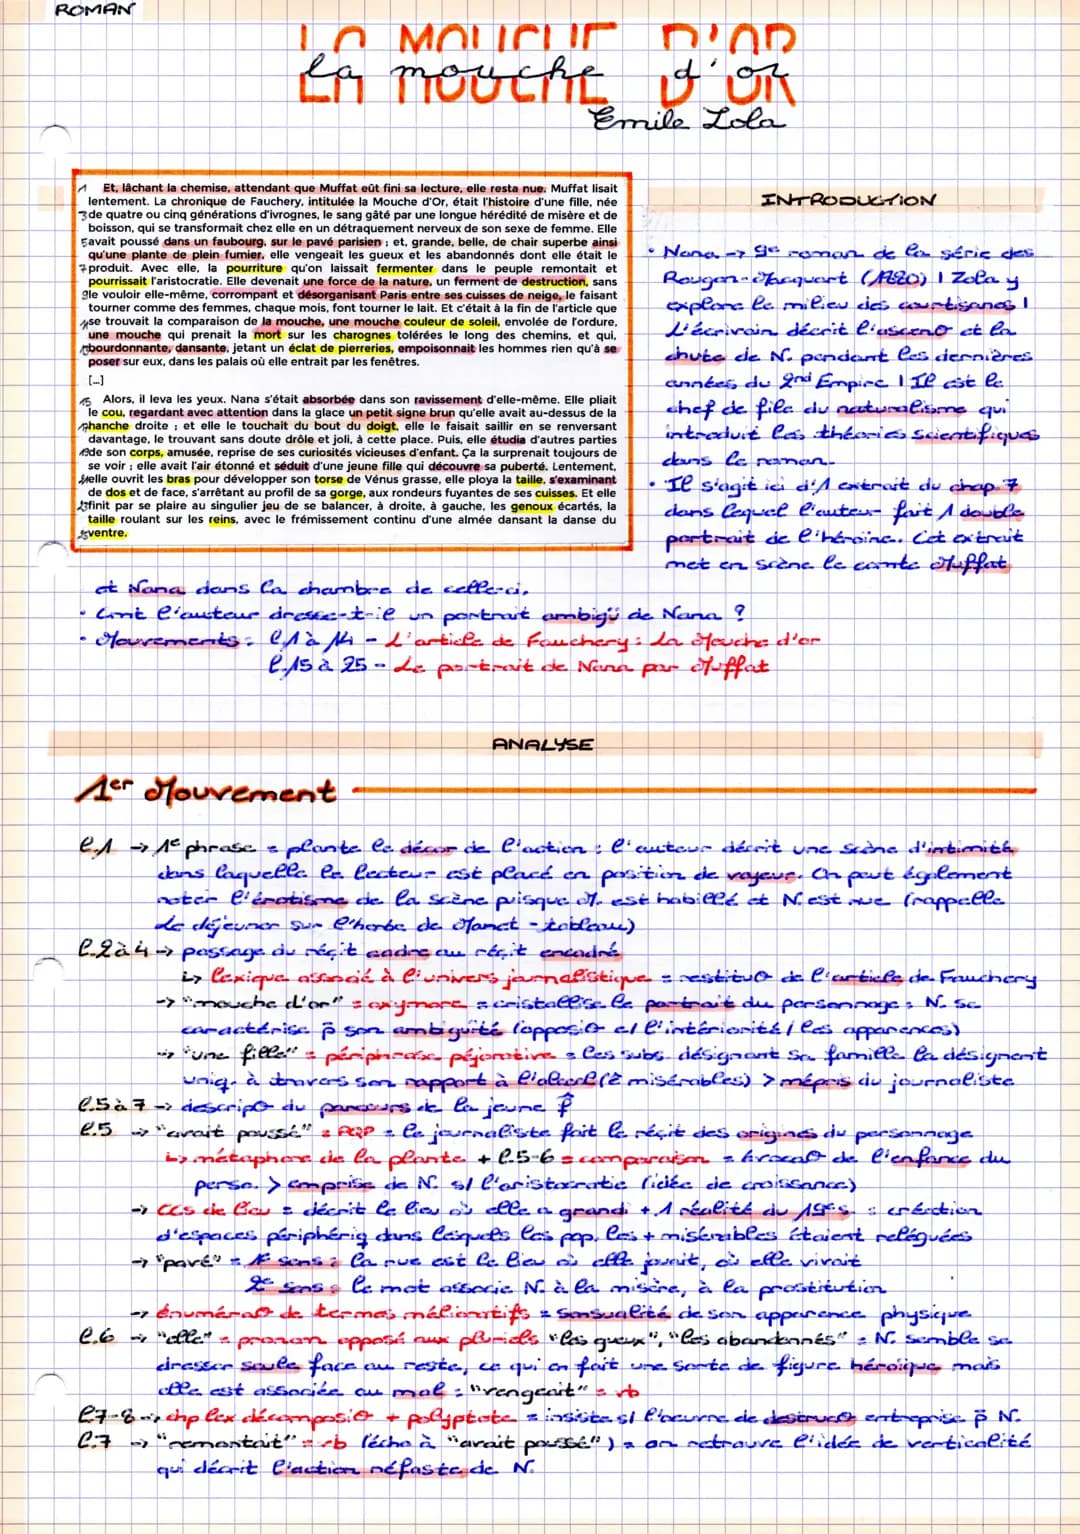 ROMAN
LA MOUCHE D'OR
la mouche d'or
Emile Zola
1 Et, lâchant la chemise, attendant que Muffat eût fini sa lecture, elle resta nue. Muffat lisait
lentement. La chronique de Fauchery, intitulée la Mouche d'Or, était l'histoire d'une fille, née
3 de quatre ou cinq générations d'ivrognes, le sang gâté par une longue hérédité de misère et de
boisson, qui se transformait chez elle en un détraquement nerveux de son sexe de femme. Elle
5 avait poussé dans un faubourg, sur le pavé parisien ; et, grande, belle, de chair superbe ainsi
qu'une plante de plein fumier, elle vengeait les gueux et les abandonnés dont elle était le
7 produit. Avec elle, la pourriture qu'on laissait fermenter dans le peuple remontait et
pourrissait l'aristocratie. Elle devenait une force de la nature, un ferment de destruction, sans
9 le vouloir elle-même, corrompant et désorganisant Paris entre ses cuisses de neige, le faisant
tourner comme des femmes, chaque mois, font tourner le lait. Et c'était à la fin de l'article que
11 se trouvait la comparaison de la mouche, une mouche couleur de soleil, envolée de l'ordure,
une mouche qui prenait la mort sur les charognes tolérées le long des chemins, et qui,
13 bourdonnante, dansante, jetant un éclat de pierreries, empoisonnait les hommes rien qu'à se
poser sur eux, dans les palais où elle entrait par les fenêtres.
[...]
15 Alors, il leva les yeux. Nana s'était absorbée dans son ravissement d'elle-même. Elle pliait
le cou, regardant avec attention dans la glace un petit signe brun qu'elle avait au-dessus de la
17 hanche droite ; et elle le touchait du bout du doigt, elle le faisait saillir en se renversant
davantage, le trouvant sans doute drôle et joli, à cette place. Puis, elle étudia d'autres parties
19 de son corps, amusée, reprise de ses curiosités vicieuses d'enfant. Ça la surprenait toujours de
se voir ; elle avait l'air étonné et séduit d'une jeune fille qui découvre sa puberté. Lentement,
21 elle ouvrit les bras pour développer son torse de Vénus grasse, elle ploya la taille, s'examinant
de dos et de face, s'arrêtant au profil de sa gorge, aux rondeurs fuyantes de ses cuisses. Et elle
23 finit par se plaire au singulier jeu de se balancer, à droite, à gauche, les genoux écartés, la
taille roulant sur les reins, avec le frémissement continu d'une almée dansant la danse du
25 ventre.
INTRODUCTION
• Nana → 9e roman de la série des
Rougon-Macquart (1880) | Zola y
explore le milieu des courtisanes |
L'écrivain décrit l'ascen⊖ et la
chute de N. pendant les dernières
années du 2nd Empire | Il est le
chef de file du naturalisme qui
introduit les théories scientifiques
dans le roman.
• Il s'agit ici d'1 extrait du chap. 7
dans lequel l'auteur fait 1 double
portrait de l'héroïne. Cet extrait
met en scène le comte Muffat
et Nana dans la chambre de celle-ci.
• Cmt l'auteur dresse-t-il un portrait ambigü de Nana ?
• Mouvements : l.1 à 14 - L'article de Fauchery : La Mouche d'or
l.15 à 25 - Le portrait de Nana par Muffat
ANALYSE
1er Mouvement
l.1 → 1e phrase = plante le décor de l'action : l'auteur décrit une scène d'intimité
dans laquelle le lecteur est placé en position de voyeur. On peut également
noter l'érotisme de la scène puisque M. est habillé et N. est nue (rappelle
Le déjeuner sur l'herbe de Manet - tableau)
l.2 à 4 → passage du récit cadre au récit encadré
↳ lexique associé à l'univers journalistique = restitu⊖ de l'article de Fauchery
→ "mouche d'or" = oxymore = cristallise le portrait du personnage : N. se
caractérise p̄ son ambiguïté (opposi⊖ e/ l'intériorité / les apparences)
→ "une fille" = périphrase péjorative = les subs. désignant sa famille la désignent
uniq. à travers son rapport à l'alcool (2 misérables) > mépris du journaliste
l.5 à 7 → descrip⊖ du parcours de la jeune f̂
l.5 → "avait poussé" = PQP = le journaliste fait le récit des origines du personnage
↳ métaphore de la plante + l.5-6 = comparaison = évoca⊖ de l'enfance du
perso. > emprise de N. s/ l'aristocratie (idée de croissance)
→ CCs de lieu = décrit le lieu où elle a grandi + 1 réalité du 19e s. : création
d'espaces périphériq dans lesquels les pop. les + misérables étaient reléguées
→ "pavé" = 1e sens : la rue est le lieu où elle jouait, où elle vivait
2e sens : le mot associe N. à la misère, à la prostitution
→ énuméra⊖ de termes mélioratifs = sensualité de son apparence physique
l.6 → "elle" = pronom opposé aux pluriels "les gueux", "les abandonnés" = N. semble se
dresser seule face au reste, ce qui en fait une sorte de figure héroïque mais
elle est associée au mal : "vengeait" = vb
l.7-8 → chp lex décomposi⊖ + polyptote = insiste s/ l'œuvre de destruc⊖ entreprise p̄ N.
l.7 → "remontait" = vb (écho à "avait poussé") = on retrouve l'idée de verticalité
qui décrit l'action néfaste de N.